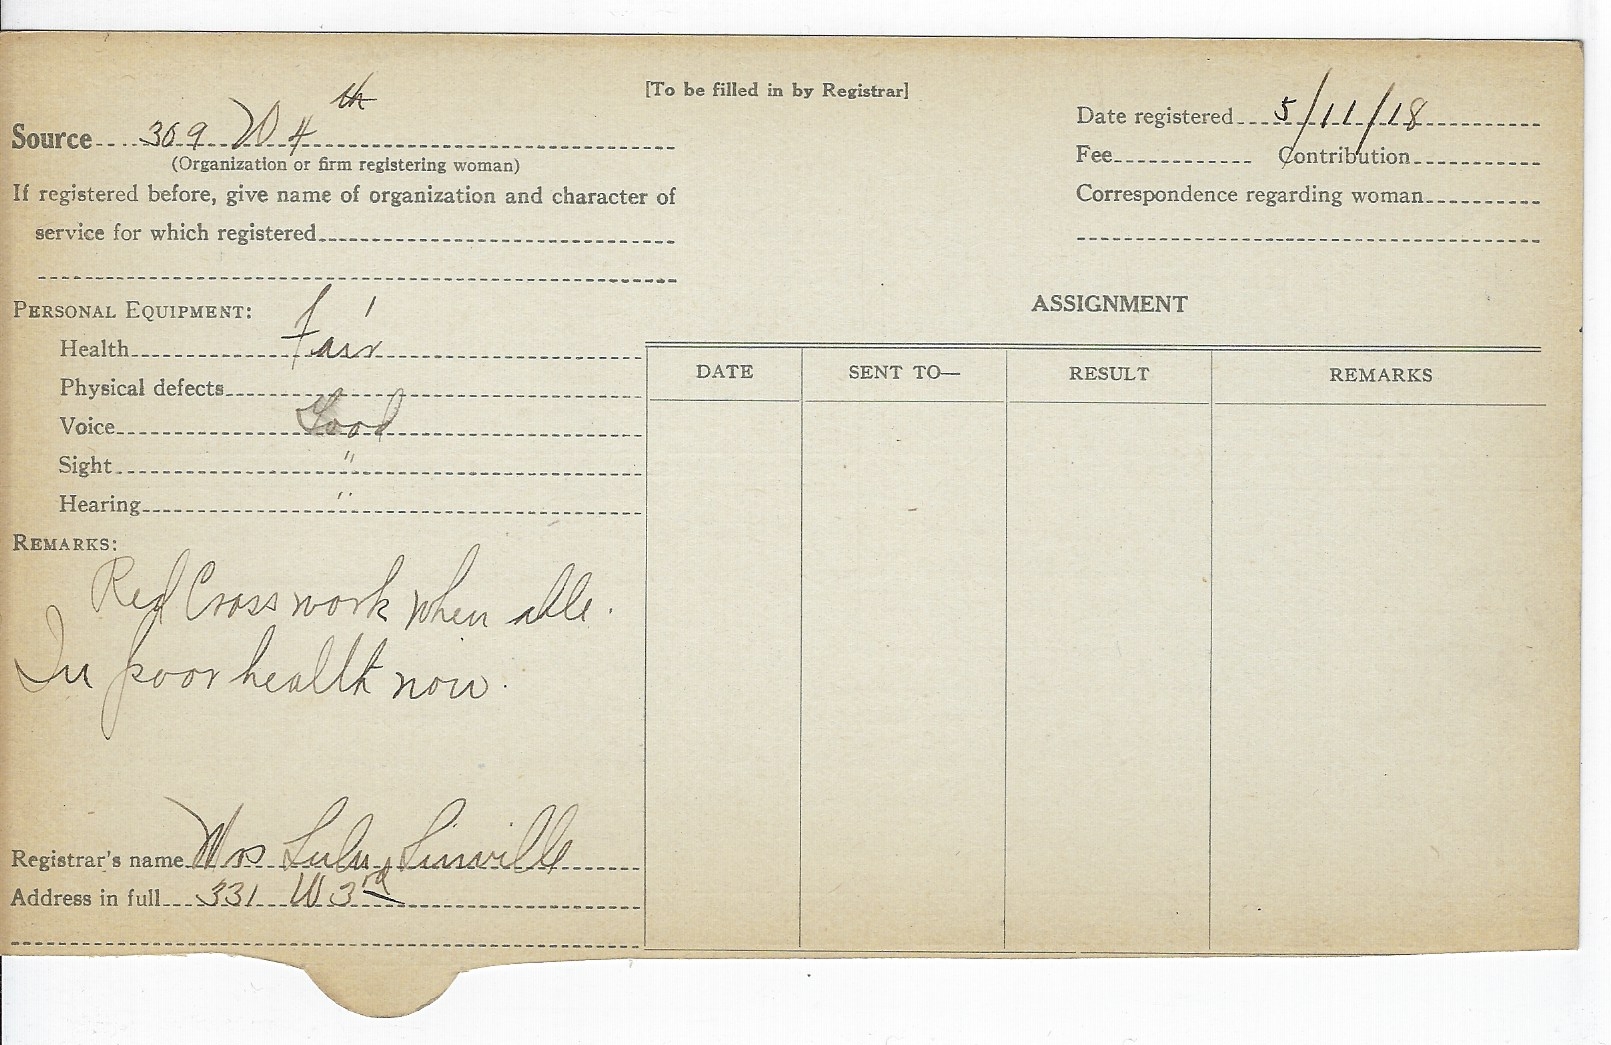 [To be filled in by Registrar]
Source 369 W 4th
(Organization or firm registering woman)
If registered before, give name of organization and character of
service for which registered
Date registered 5/11/18
Fee Contribution
Correspondence regarding woman
PERSONAL EQUIPMENT:
Health Fair
Physical defects
Voice Good
Sight "
Hearing "
REMARKS:
Red Cross work when able.
In poor health now.
Registrar's name Mrs Lulu Linville
Address in full 331 W 3rd
ASSIGNMENT
DATE SENT TO— RESULT REMARKS